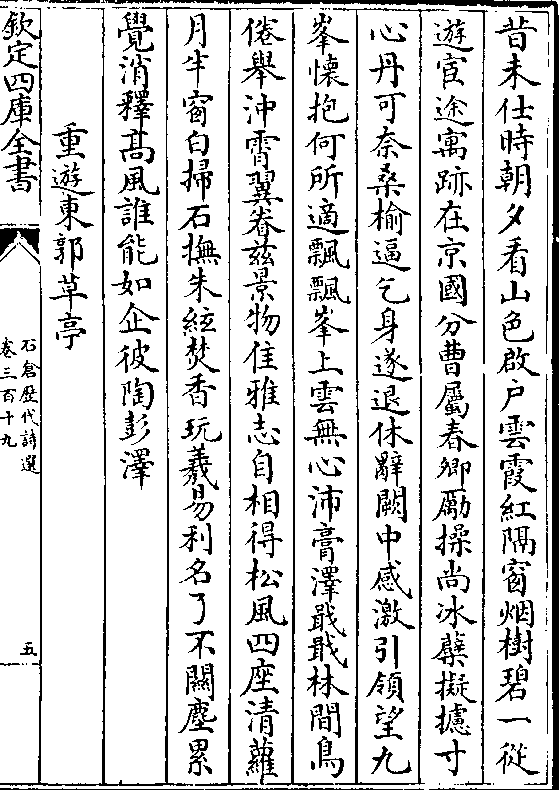 昔未仕時朝夕看山色啟户雲霞紅隔窗烟樹碧一從
遊宦途寓跡在京國分曹屬春卿勵操尚冰蘗擬攄寸
心丹可奈桑榆逼乞身遂退休辭闕中感激引領望九
峯懷抱何所適飄飄峯上雲無心沛膏澤戢戢林間鳥
倦舉沖霄翼眷兹景物佳雅志自相得松風四座清蘿
月半窗白掃石撫朱絃焚香玩羲易利名了不關塵累
覺消釋髙風誰能如企彼陶彭澤
重遊東郭草亭
欽定四庫全書
石倉歷代詩選
卷三百十九
五